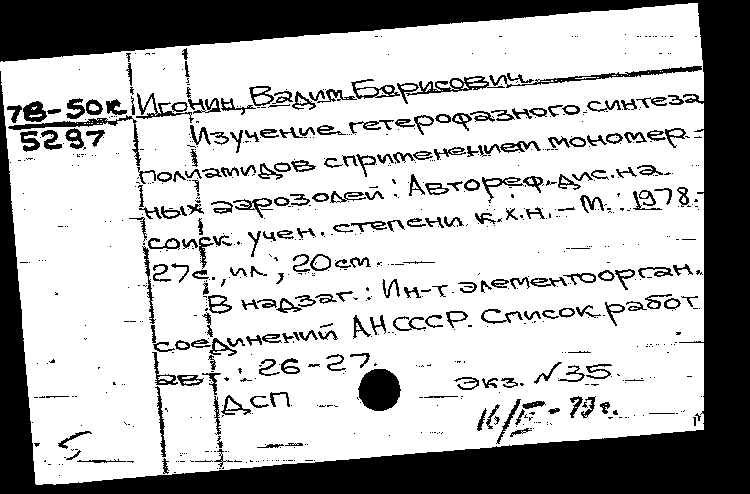 78-50к Игонин, Вадим Борисович.
5297
Изучение гетерофазного синтеза
полиамидов с применением мономер-
ных аэрозолей : Автореф. дис. на
соиск. учен. степени к.х.н. – М. : 1978.-
27с., ил ; 20 см.
В надзаг. : Ин-т элементоорган.
соединений АН СССР. Список работ
авт. : 26-27.
ДСП
Экз. №35.
16/